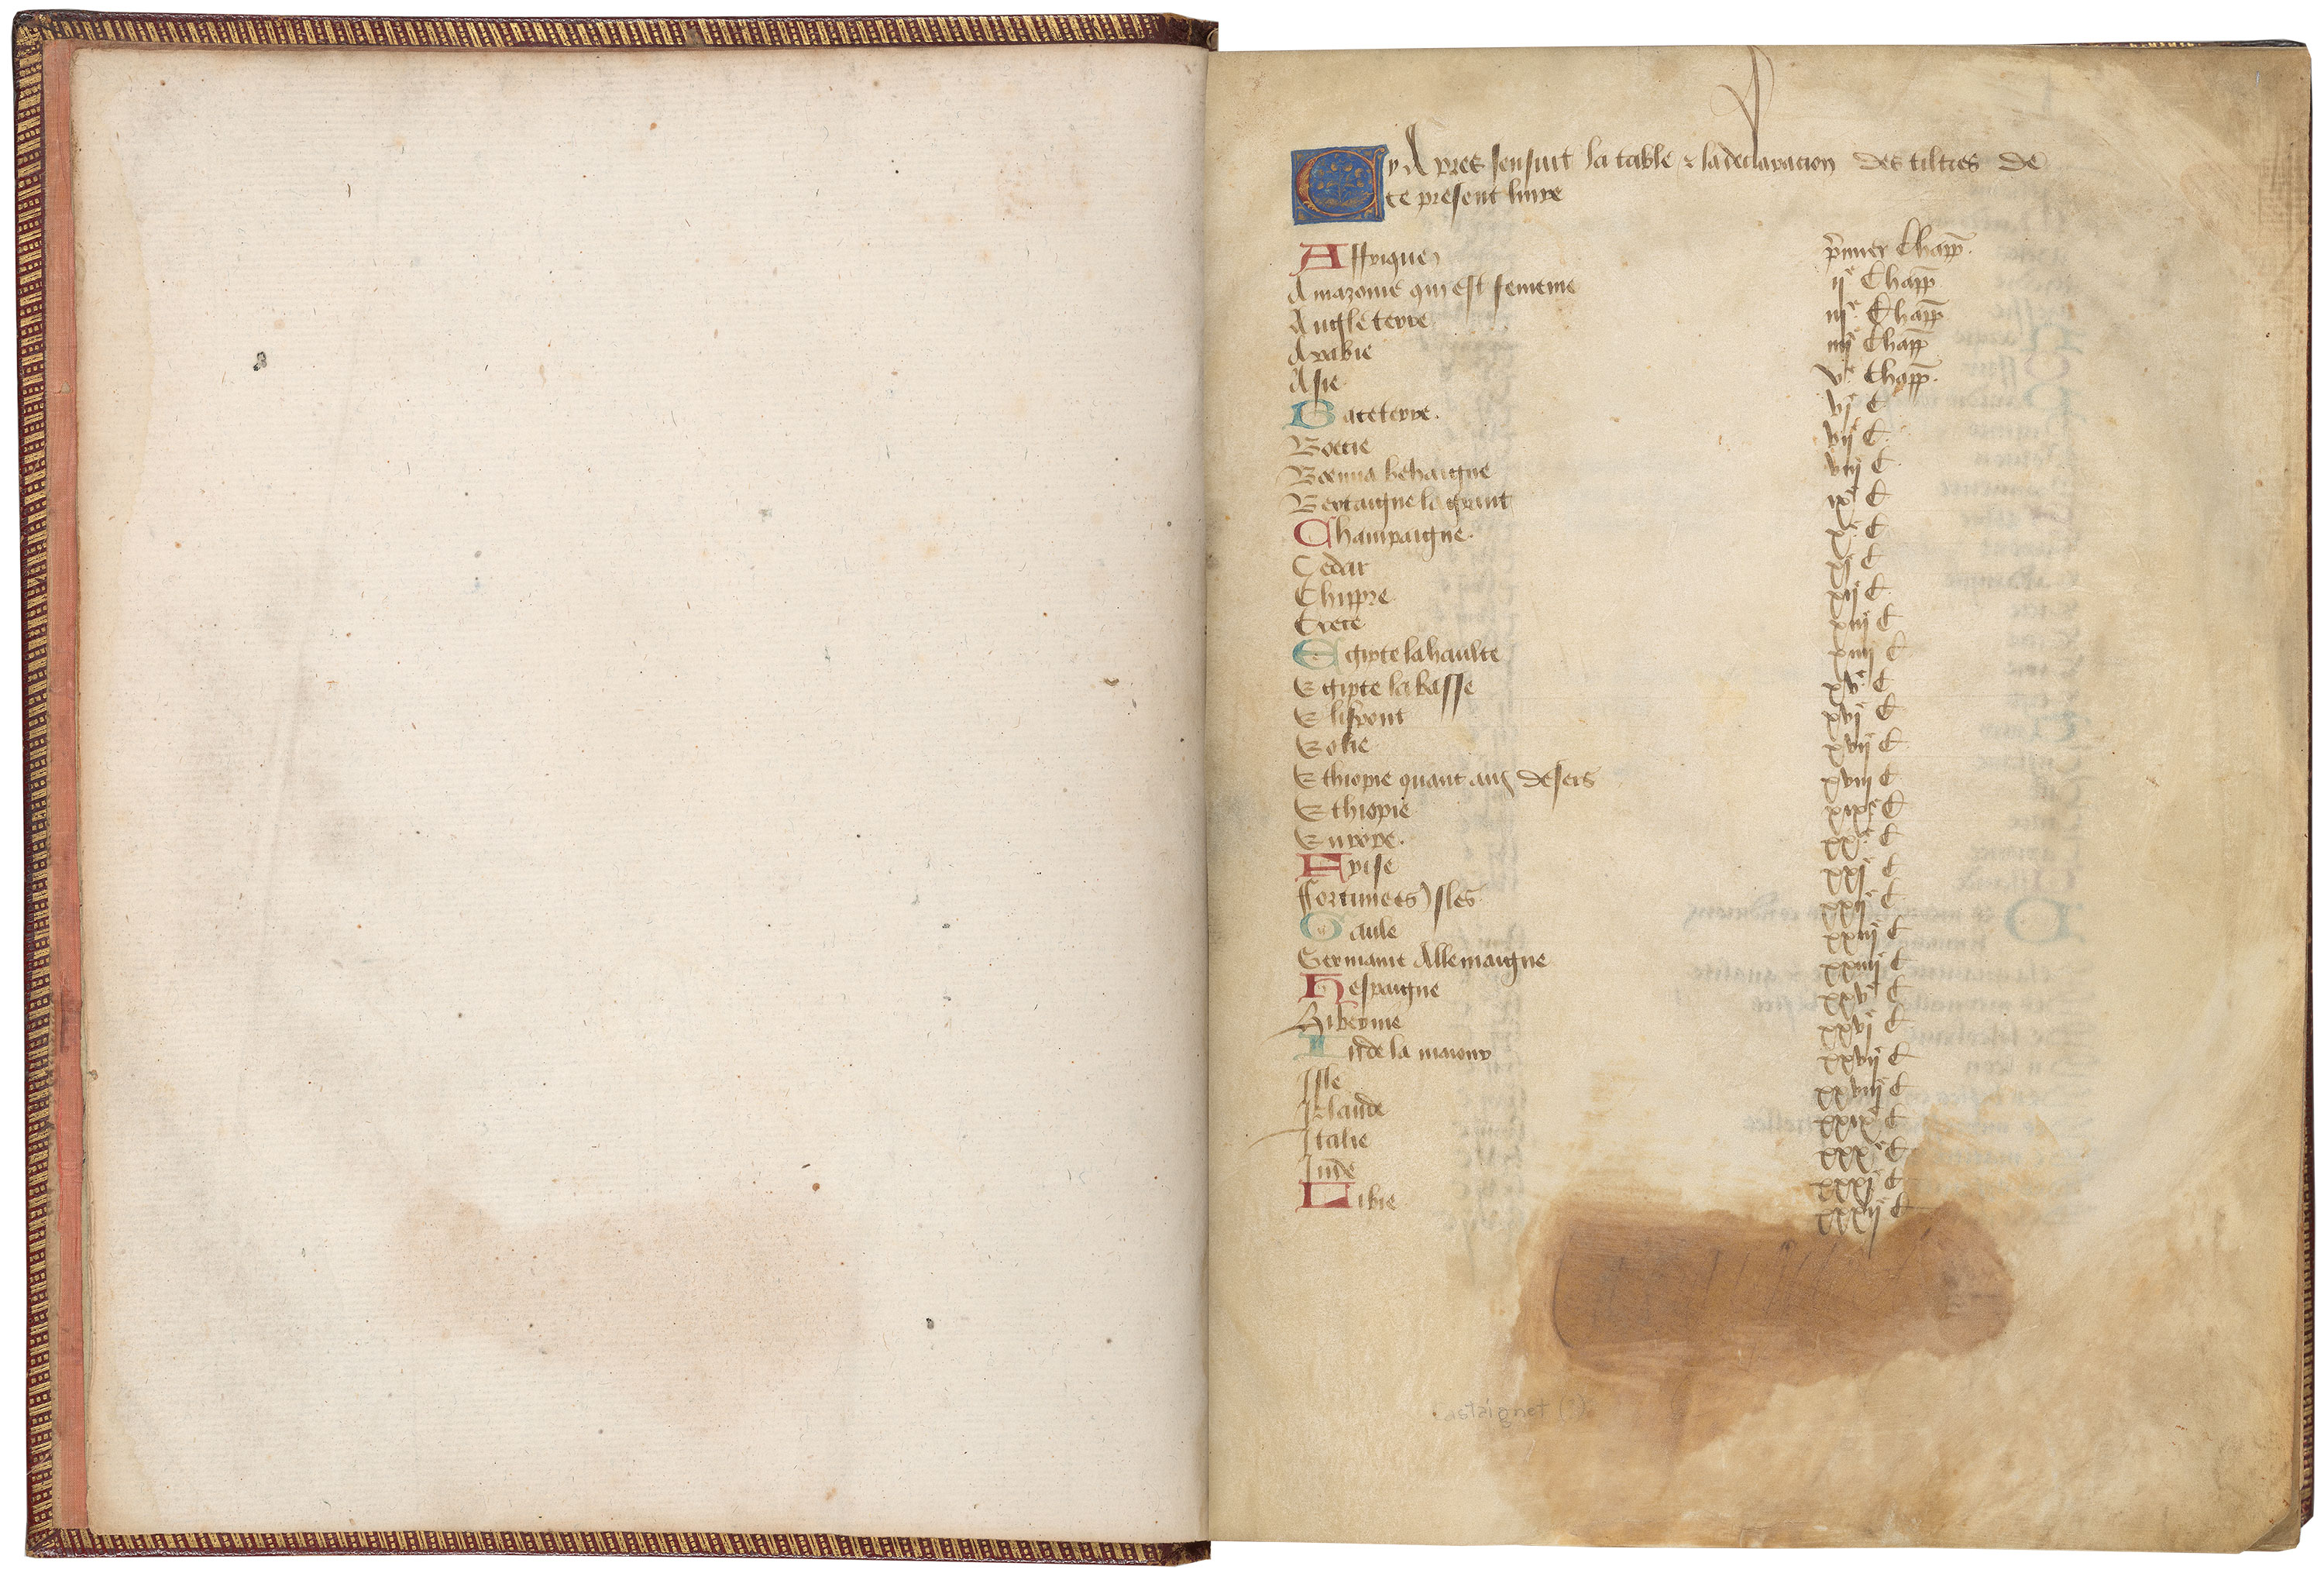 Cy Apres sensuit la table & la declaracion des tiltres de
ce present livre
Affrique premier Chapp.
Amazonie qui est femenie ije Chapp
Angleterre iije Chapp
Arabie iiije Chapp
Asie ve Chapp.
Baceterre. vje C
Boecie vije C
Boemia behaigne viije C
Bertaigne la grant ixe C
Champaigne. xe C
Cedar xje C
Chippre xije C
Crete xiije C
Egipte la haulte xiiije C
Egipte la basse xve C
Elispont xvje C
Eolie xvije C
Ethiopie quant aux desers xviije C
Ethiopie xixe C
Europe. xxe C
Frise xxje C
Ffortunees Isles xxije C
Gaule xxiije C
Germanie Allemaigne xxiiije C
Hespaigne xxve C
Hibernie xxvje C
Inde la maiour xxvije C
Isle xxviije C
Irlande xxixe C
Italie xxxe C
Inde xxxje C
Libie xxxije C
astaignet (?)